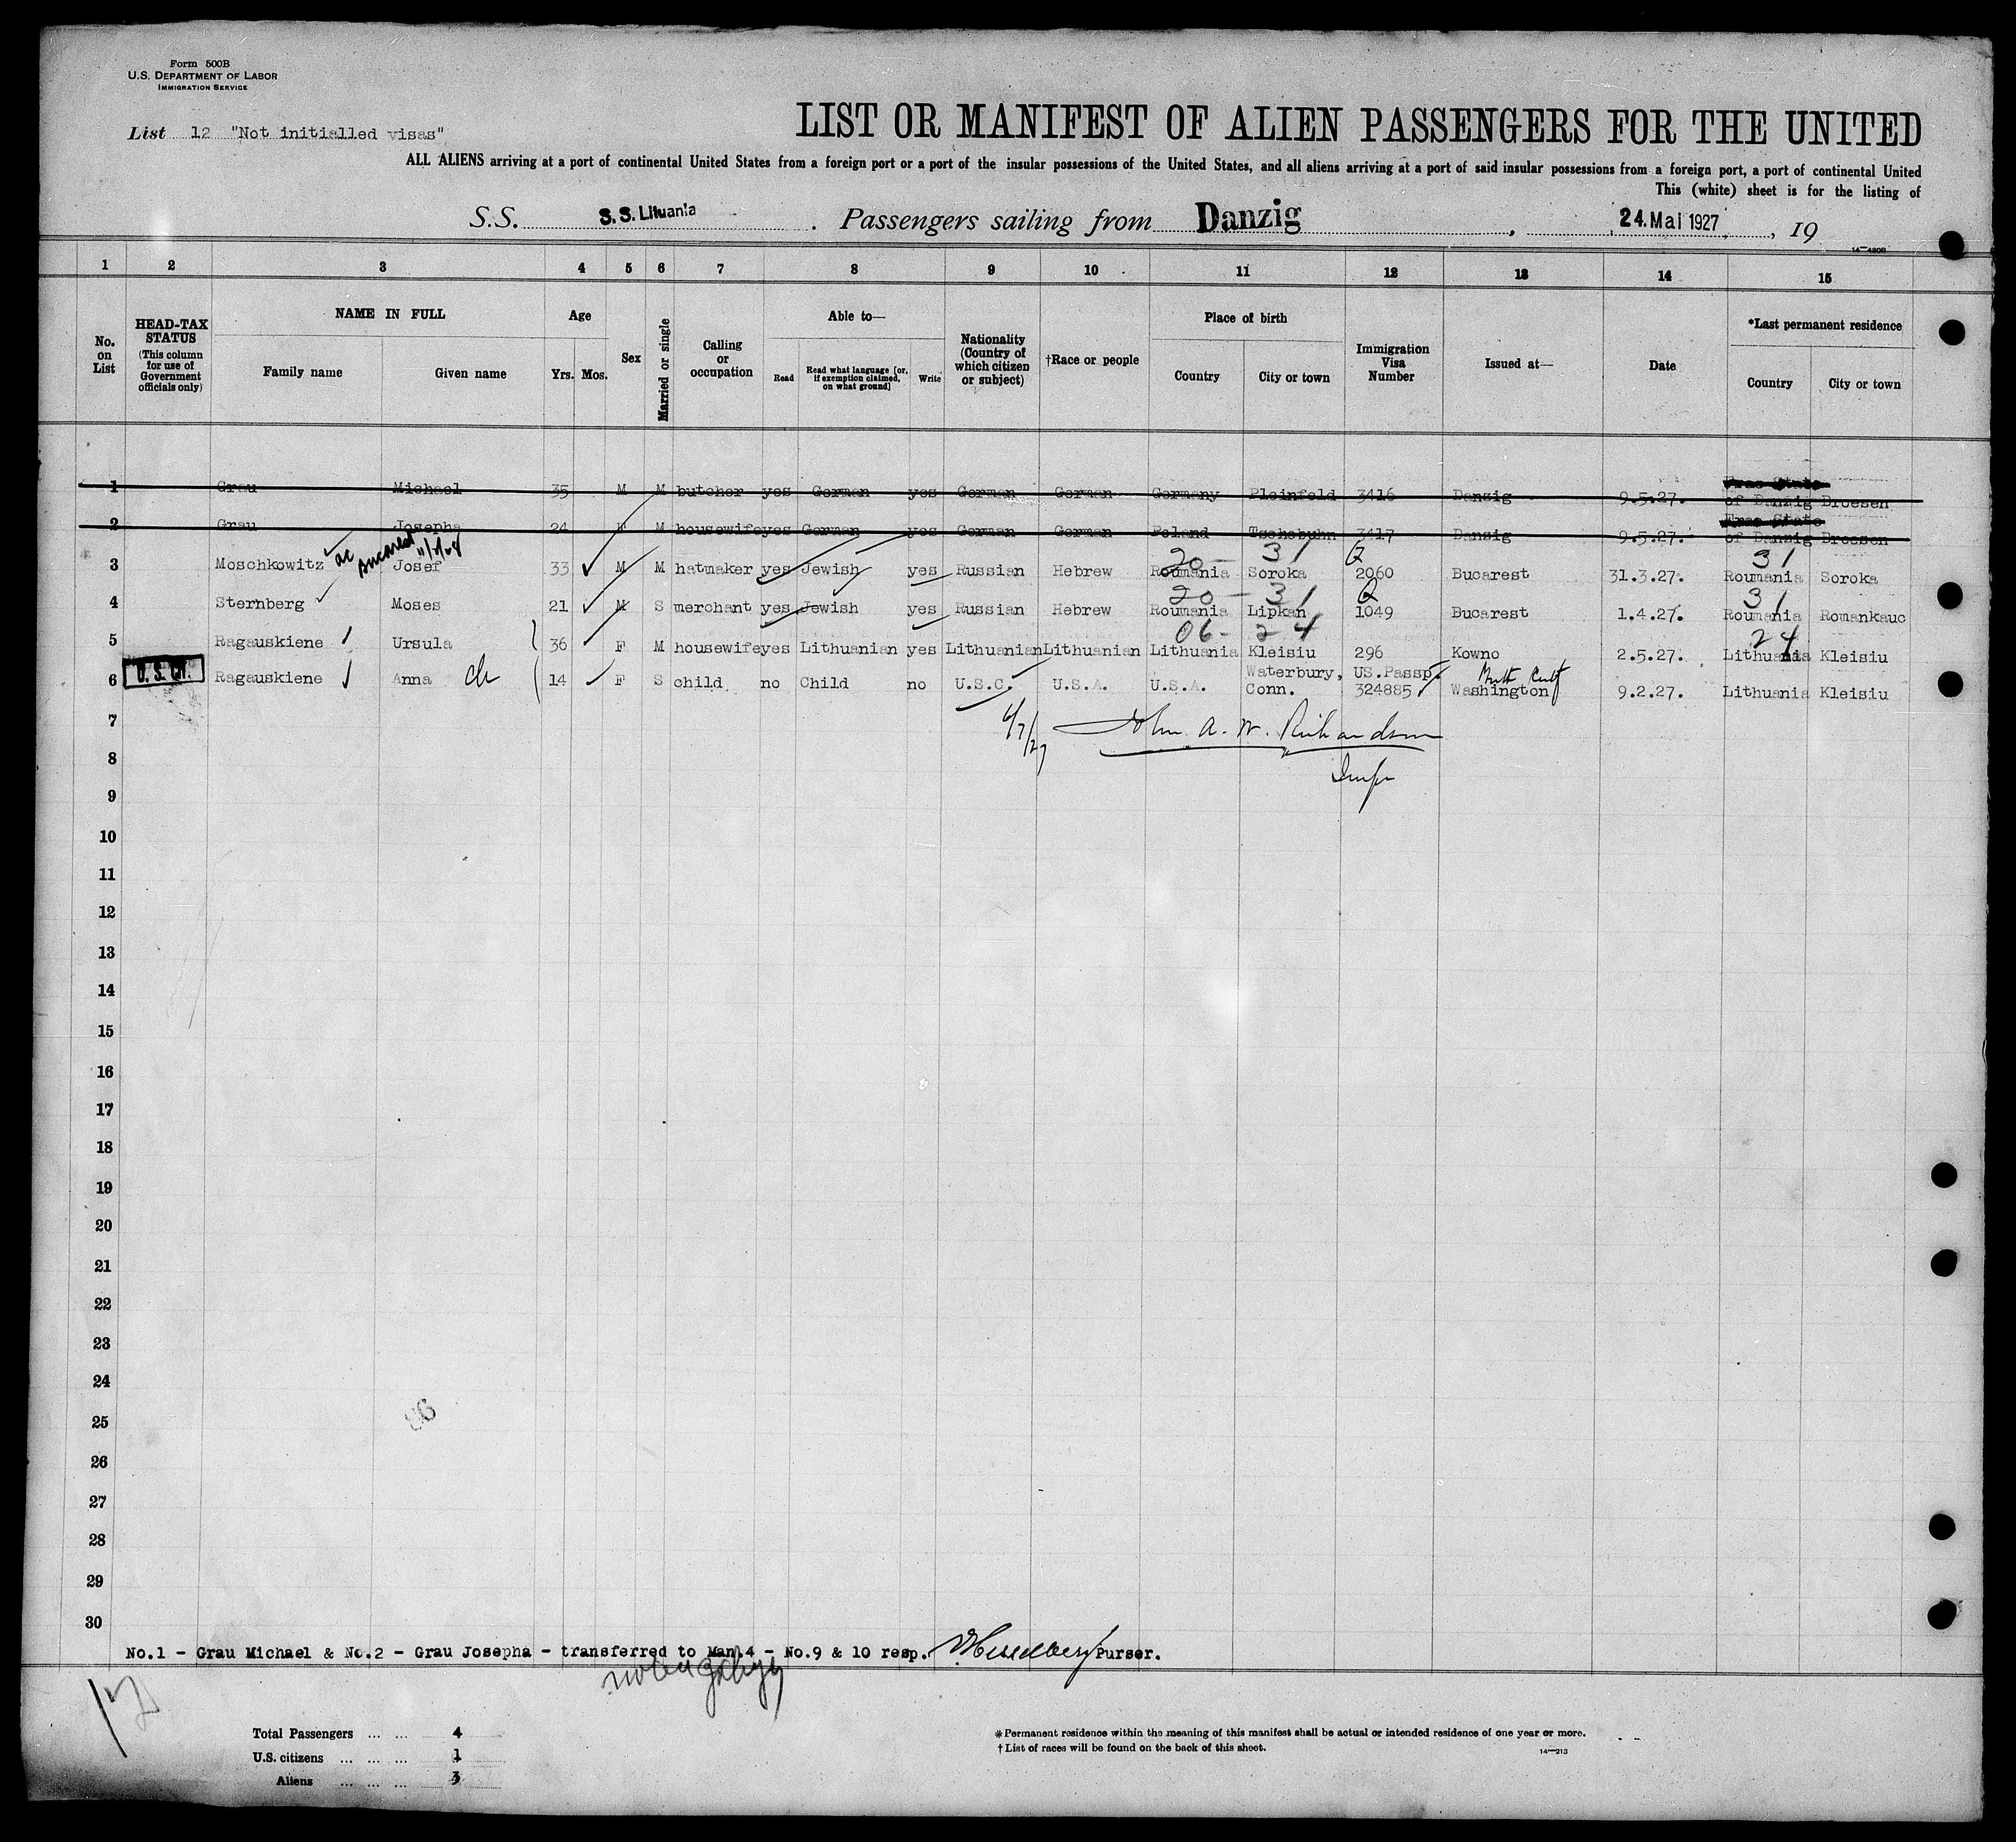 Form 500B
U.S. DEPARTMENT OF LABOR
IMMIGRATION SERVICE
List 12 "Not initialled visas"
LIST OR MANIFEST OF ALIEN PASSENGERS FOR THE UNITED
ALL ALIENS arriving at a port of continental United States from a foreign port or a port of the insular possessions of the United States, and all aliens arriving at a port of said insular possessions from a foreign port, a port of continental United
This (white) sheet is for the listing of
S.S. S.S. Lituania. Passengers sailing from Danzig, 24. Mai 1927, 19
14—4208
1 2 3 4 5 6 7 8 9 10 11 12 13 14 15
No. on List
HEAD-TAX STATUS (This column for use of Government officials only)
NAME IN FULL
Family name Given name
Age
Yrs. Mos.
Sex
Married or single
Calling or occupation
Able to—
Read Read what language [or, if exemption claimed, on what ground] Write
Nationality (Country of which citizen or subject)
†Race or people
Place of birth
Country City or town
Immigration Visa Number
Issued at—
Date
*Last permanent residence
Country City or town
1 Grau Michael 35 M M butcher yes German yes German German Germany Pleinfeld 3416 Danzig 9.5.27. Free State of Danzig Broesen
2 Grau Josepha 24 F M housewife yes German yes German German Poland Tzchebuhn 3417 Danzig 9.5.27. Free State of Danzig Broesen
20 - 31 31
3 Moschkowitz Josef 33 M M hatmaker yes Jewish yes Russian Hebrew Roumania Soroka 2060 Bucarest 31.3.27. Roumania Soroka
20 - 31 31
4 Sternberg Moses 21 M S merchant yes Jewish yes Russian Hebrew Roumania Lipkan 1049 Bucarest 1.4.27. Roumania Romankauc
06 - 24 24
5 Ragauskiene Ursula 36 F M housewife yes Lithuanian yes Lithuanian Lithuanian Lithuania Kleisiu 296 Kowno 2.5.27. Lithuania Kleisiu
6 U.S. CIT. Ragauskiene Anna ch 14 F S child no Child no U.S.C. U.S.A. U.S.A. Waterbury, Conn. US.Passp. 324885 Birth Cert Washington 9.2.27. Lithuania Kleisiu
7
6/7/27 John A. W. Richardson
8
Insp
9
10
11
12
13
14
15
16
17
18
19
20
21
22
23
24
25
26
27
28
29
30
No.1 - Grau Michael & No.2 - Grau Josepha - transferred to Man.4 - No.9 & 10 resp. Purser.
12
Total Passengers ... ... 4
U.S. citizens ... ... ... 1
Aliens ... ... ... 3
*Permanent residence within the meaning of this manifest shall be actual or intended residence of one year or more.
†List of races will be found on the back of this sheet.
14—213